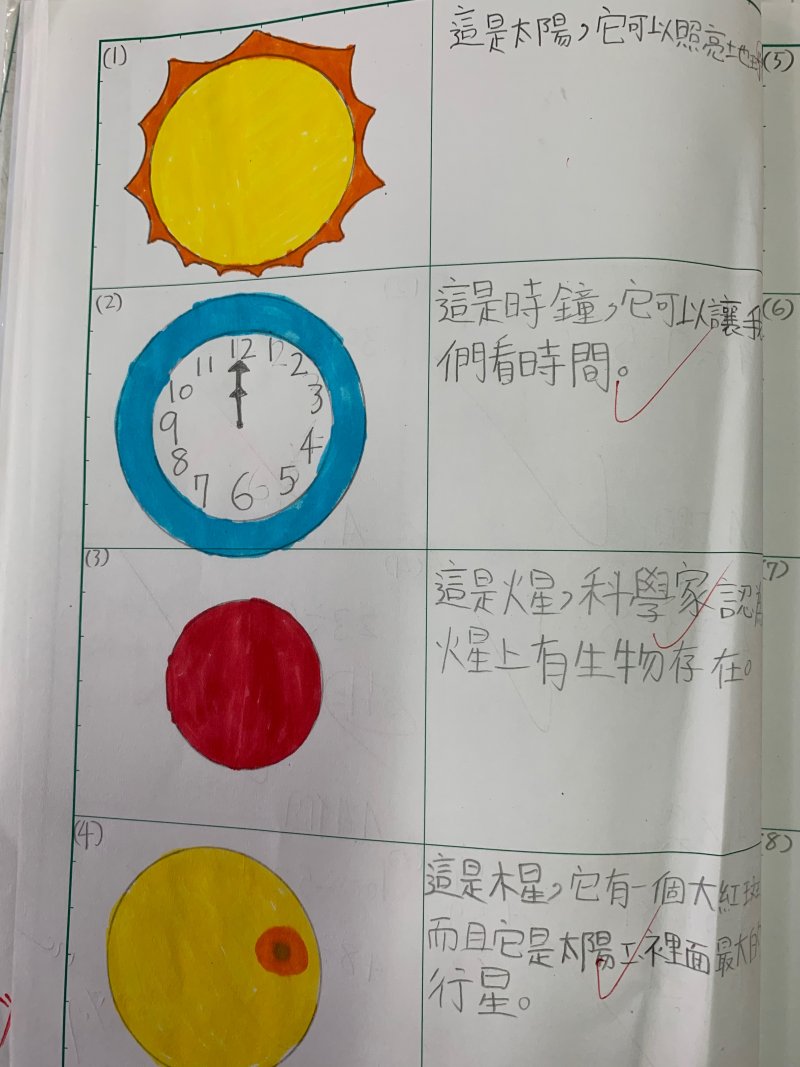 (1)
這是太陽，它可以照亮地球
(2)
12
11
1
2
10
3
9
4
8
5
7
6
這是時鐘，它可以讓我
們看時間。
(3)
這是火星，科學家認為
火星上有生物存在。
(4)
這是木星，它有一個大紅斑
而且它是太陽系裡面最大的
行星。
(5)
(6)
(7)
(8)